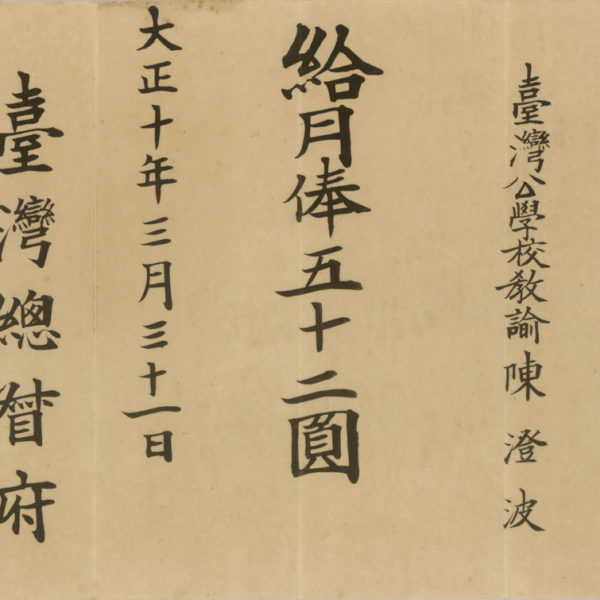 臺灣公學校教諭陳澄波
給月俸五十二圓
大正十年三月三十一日
臺灣總督府